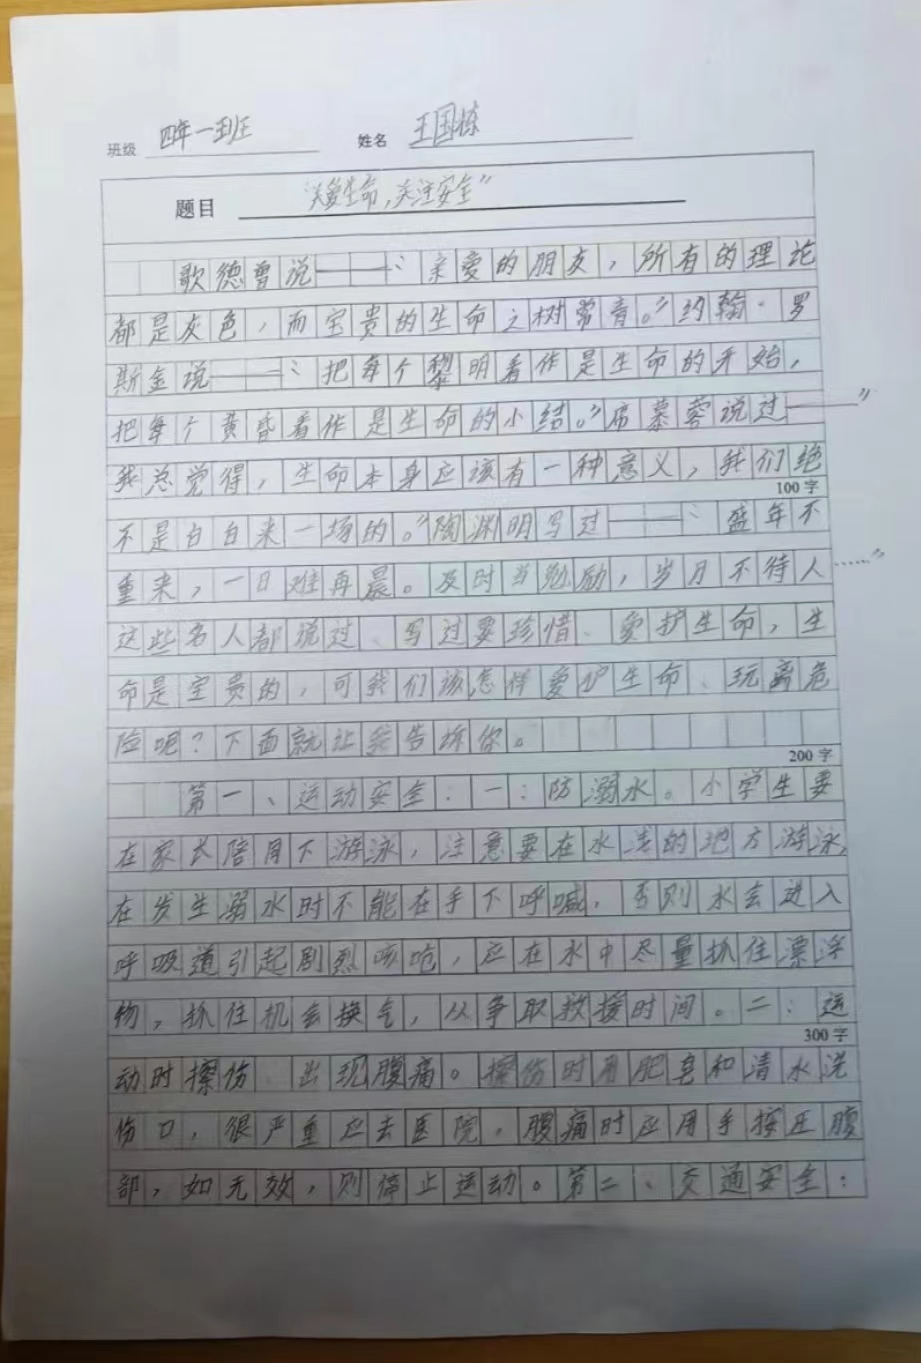 班级 四年一班 姓名 王国栋
题目 “关爱生命,关注安全”
歌德曾说——:亲爱的朋友,所有的理论
都是灰色,而宝贵的生命之树常青。”约翰·罗
斯金说——:把每个黎明看作是生命的开始,
把每个黄昏看作是生命的小结。”席慕蓉说过——”
我总觉得,生命本身应该有一种意义,我们绝
100字
不是白白来一场的。”陶渊明写过——:盛年不
重来,一日难再晨。及时当勉励,岁月不待人……”
这些名人都说过、写过要珍惜、爱护生命,生
命是宝贵的,可我们该怎样爱护生命、玩离危
险呢?下面就让我告诉你。
200字
第一、运动安全:一:防溺水。小学生要
在家长陪同下游泳,注意要在水浅的地方游泳,
在发生溺水时不能在手下呼喊,否则水会进入
呼吸道引起剧烈咳呛,应在水中尽量抓住漂浮
物,抓住机会换气,从争取救援时间。二:运
300字
动时擦伤 出现腹痛。擦伤时用肥皂和清水洗
伤口,很严重应去医院,腹痛时应用手按压腹
部,如无效,则停止运动。第二、交通安全: